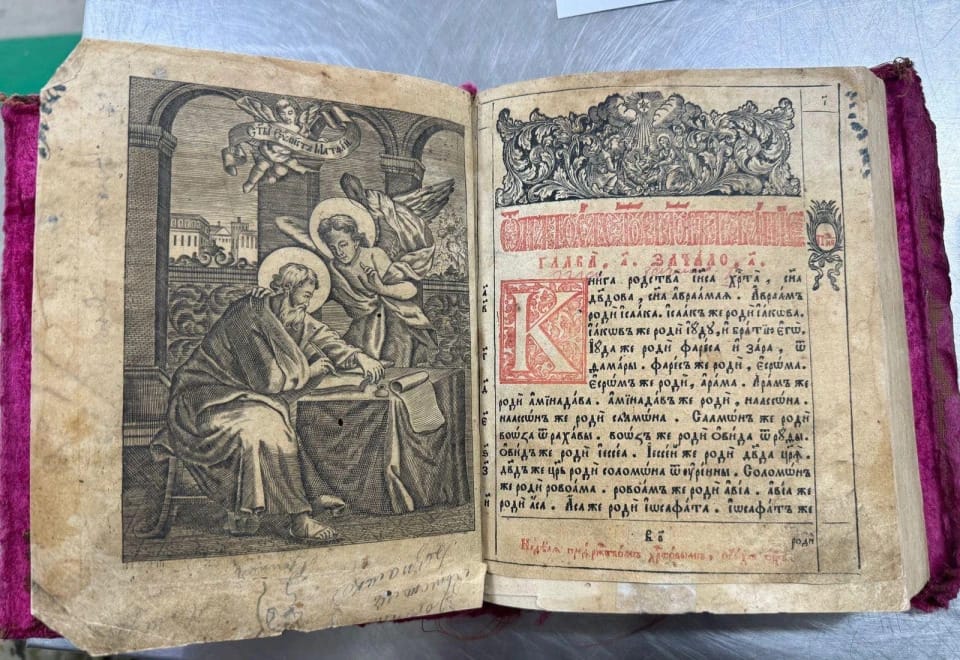 СТ҃ЫЙ ЕѴⷢ҇ЛИСТЪ МАТѲЕЙ
ГЛАВА̀, а҃. ЗАЧА́ЛО, а҃.
Кни́га родства̀ і҆и҃са хр҇та̀, сн҃а
дв҃дова, сн҃а а҆враа́мля. А҆враа́мъ
родѝ і҆саа́ка. І҆саа́къ же родѝ і҆а́кѡва.
І҆а́кѡвъ же родѝ і҆ꙋ́дꙋ, и҆ бра́тїю є҆гѡ̀.
І҆ꙋ́да же родѝ фаре́са и҆ за́ра, ѿ
дама́ры. фаре́съ же родѝ, є҆срѡ́ма.
Є҆срѡ́мъ же родѝ, а҆ра́ма. А҆ра́мъ же
родѝ а҆мїнада́ва. А҆мїнада́въ же родѝ, наассѡ́на.
наассѡ́нъ же родѝ салмѡ́на. Салмѡ́нъ же родѝ
воѻ́за ѿ раха́вы. воѻ́зъ же родѝ ѻ҆ви́да ѿ рꙋ́ды.
Ѻ҆ви́дъ же родѝ і҆ессе́а. І҆ессе́й же родѝ дв҃да цр҃ѧ̀.
дв҃дъ же цр҃ь родѝ соломѡ́на ѿ ᲂу҆рі́ины. Соломѡ́нъ
же родѝ ровоа́ма. ровоа́мъ же родѝ а҆ві́а. А҆ві́а же
родѝ а҆́са. А҆́са же родѝ і҆ѡсафа́та. І҆ѡсафа́тъ же
роди̇̀